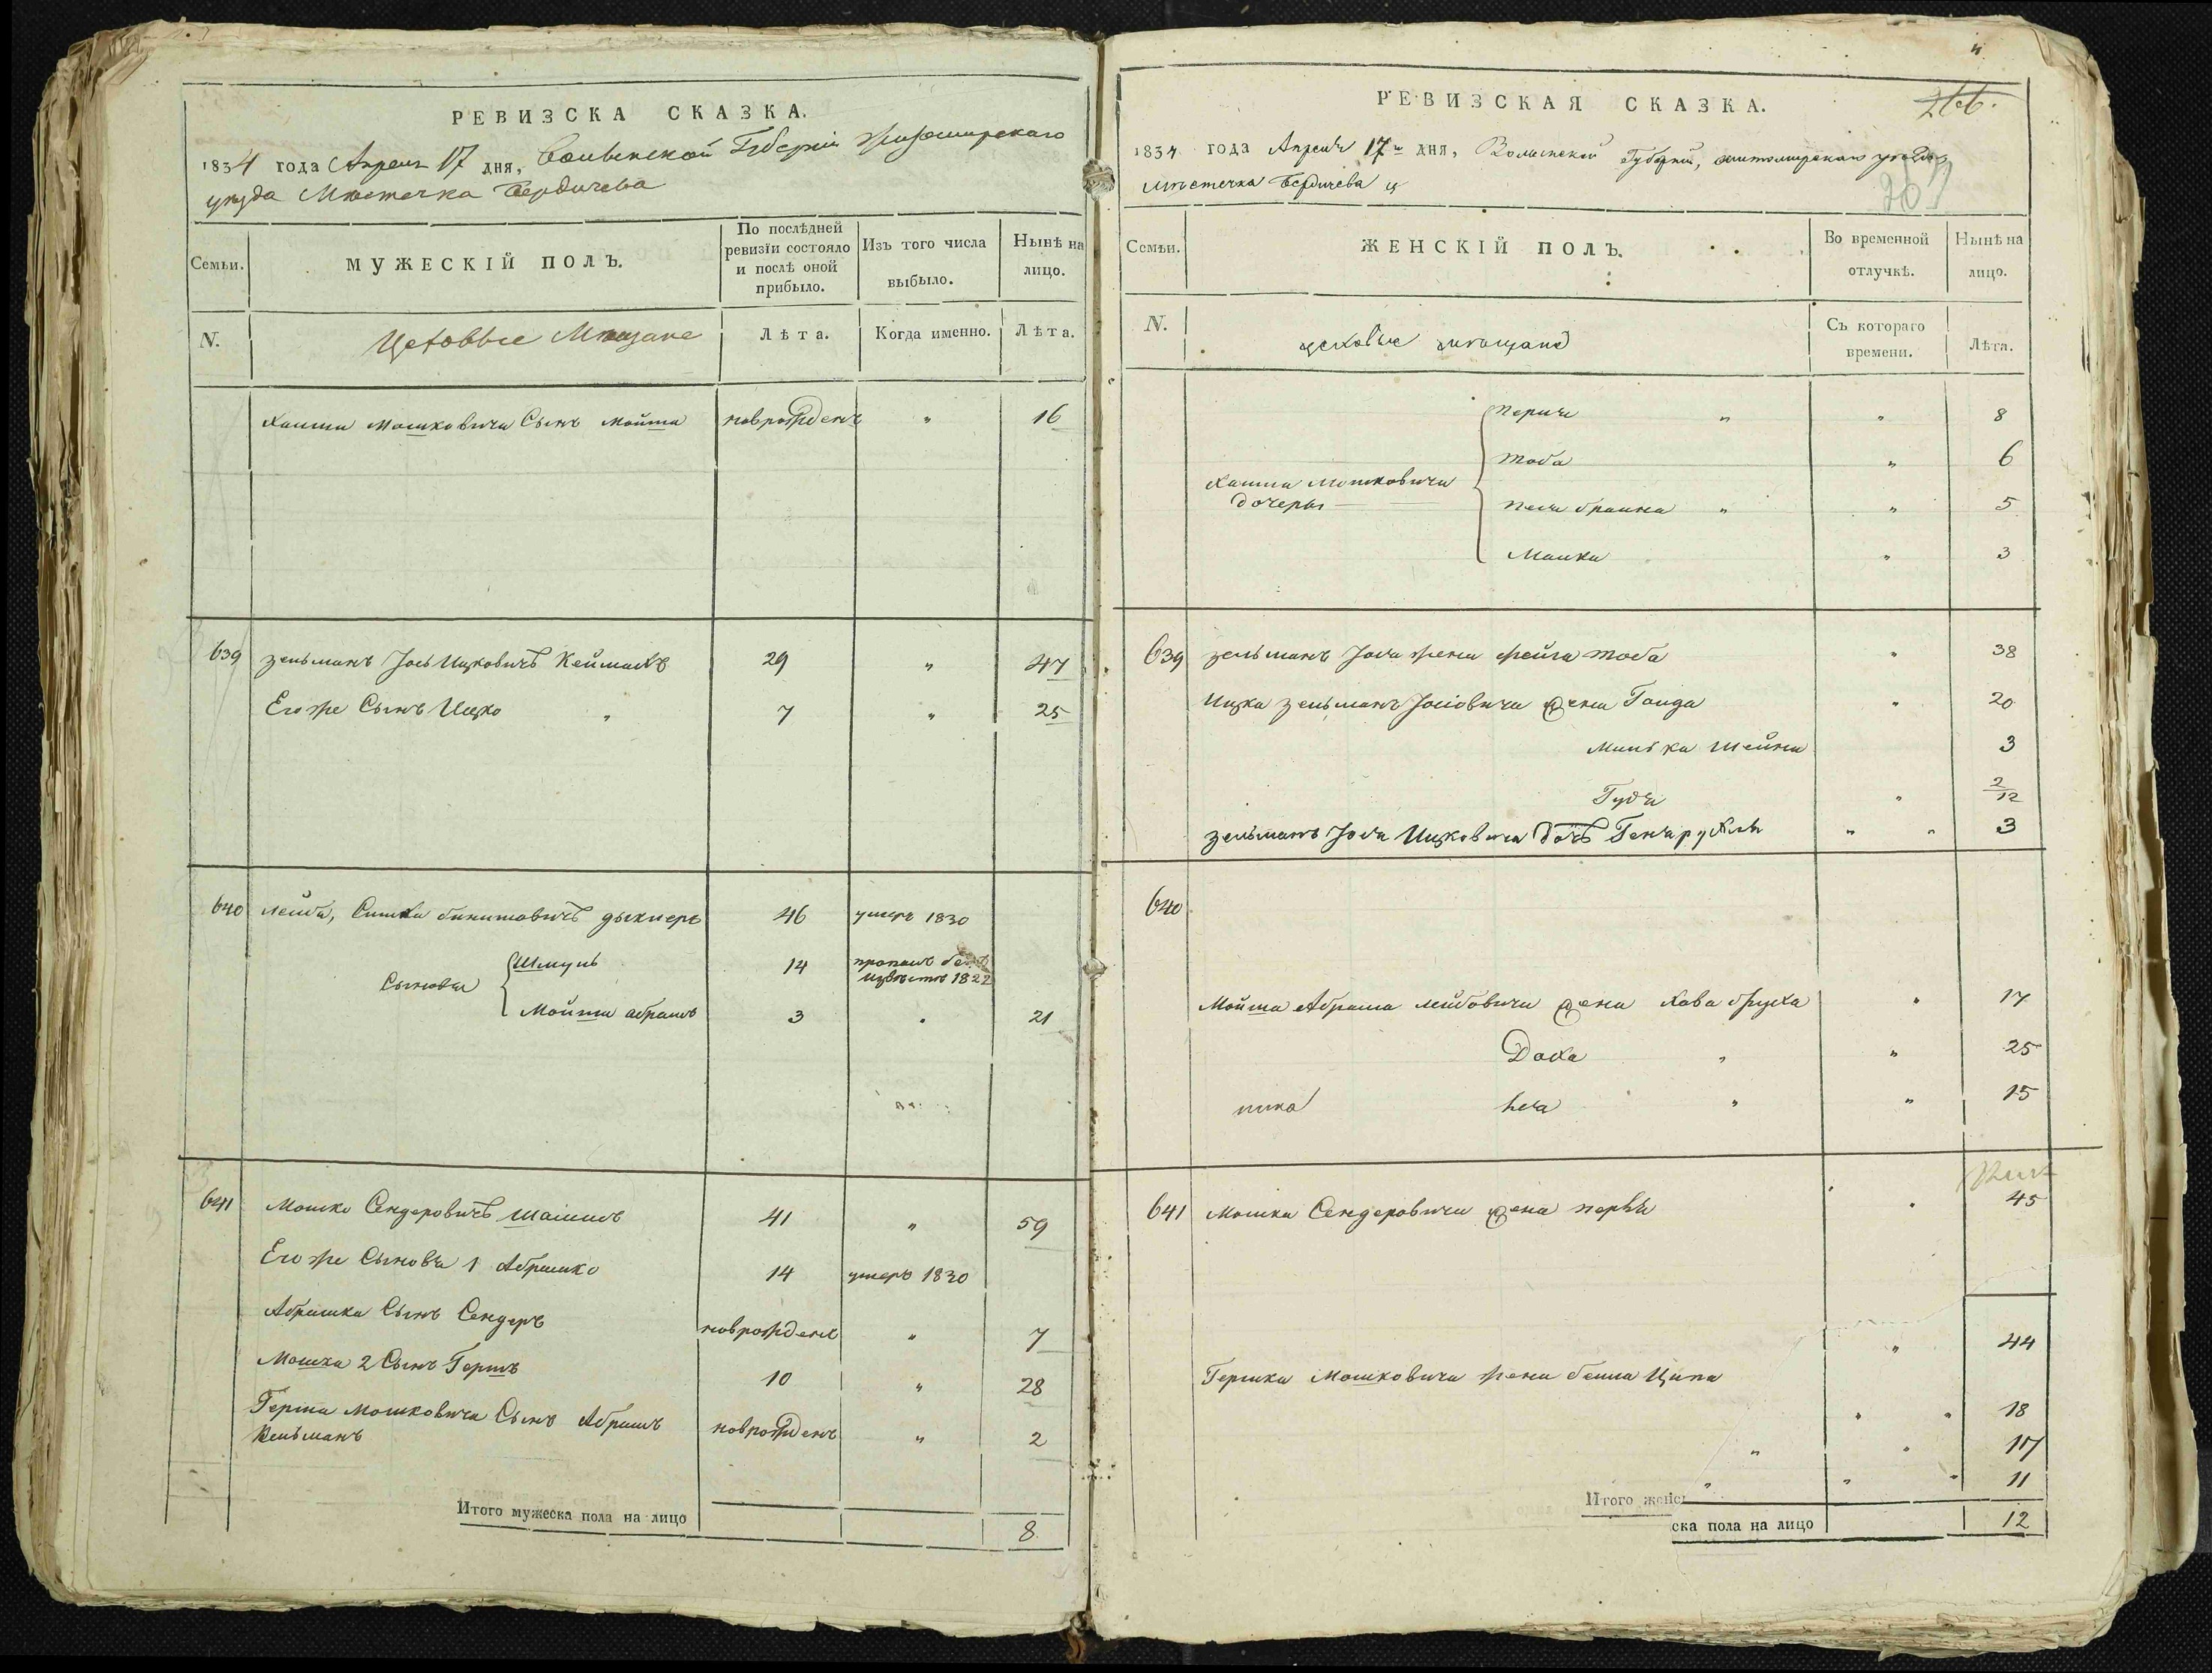 РЕВИЗСКА СКАЗКА.
1834 года Апреля 17 дня, Волынской Губерніи Житомирскаго
уезда Местечка Бердичева
Семьи.
МУЖЕСКІЙ ПОЛЪ.
По послѣдней ревизіи состояло и послѣ оной прибыло.
Изъ того числа выбыло.
Нынѣ на лицо.
N.
Цеховые Мещане
Лѣта.
Когда именно.
Лѣта.
Хаима Мошковича Сынъ Мойша новрожденъ " 16
639 Зельманъ Іось Ицковичъ 29 " 47
Его же Сынъ Ицко " 7 " 25
640 Лейба, 46 умеръ 1830
Сыновья
Шмуль 14 пропалъ безъ извѣстно 1822
Мойша абрамъ 3 " 21
641 Мошко Сендеровичъ 41 " 59
Его же Сыновья 1 Абрамко 14 умеръ 1830
Абрамка Сынъ Сендеръ новрожденъ " 7
Мошка 2 Сынъ Гершъ 10 " 28
Герша Мошковича Сынъ Абрамъ новрожденъ " 2
Зельманъ
Итого мужеска пола на лицо 8
266.
РЕВИЗСКАЯ СКАЗКА.
1834 года Апреля 17 дня, Волынской Губерніи, житомирскаго уезда
местечка Бердичева
267
Семьи.
ЖЕНСКІЙ ПОЛЪ.
Во временной отлучкѣ.
Нынѣ на лицо.
N.
цеховые мещане
Съ котораго времени.
Лѣта.
Хаима Мошковича
дочеры
Перля " " 8
Тоба " 6
Песя браина " " 5
Малка " 3
639 Зельманъ Іося жена фейга тоба " 38
Ицка Зельманъ Іосіовича жена " 20
Минька Шейна 3
" 2/12
Зельманъ Іося Ицковича дочъ " " 3
640
Мойша Абрама лейбовича жена Хава " 17
" " 25
" " 15
641 Мошка Сендеровича жена перля " 45
" 44
Гершка Мошковича жена бейла Ципа
" " 18
" " 17
" " " 11
Итого женс
ска пола на лицо 12